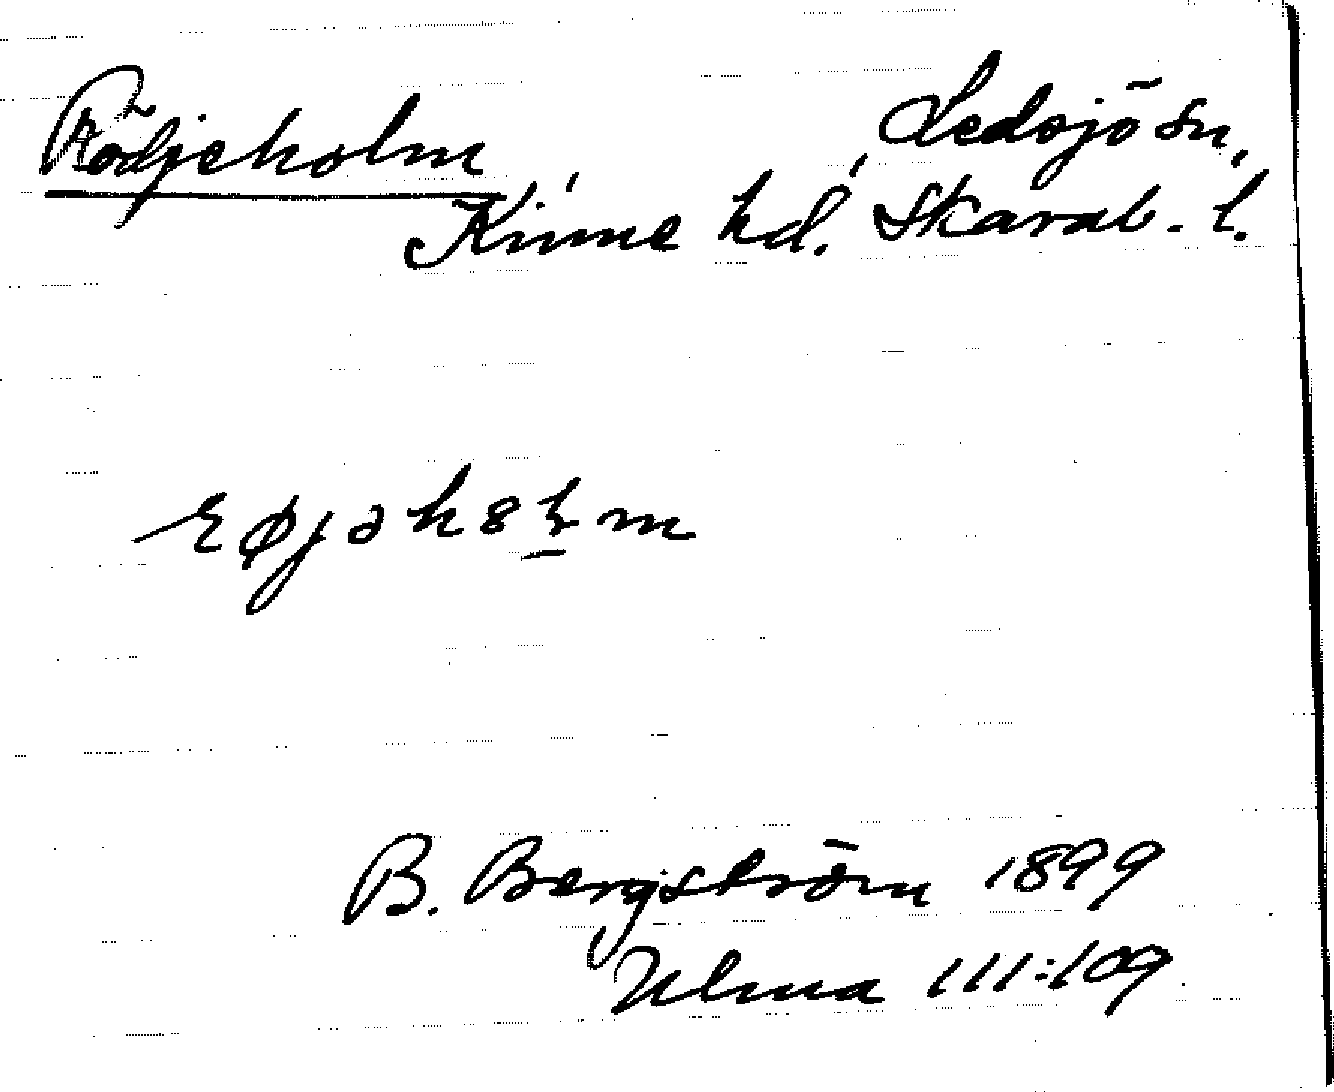 Rödjeholm Ledsjö sn,
Kinne hd. Skarab. l.
B. Bergström 1899
Ulma 111:109